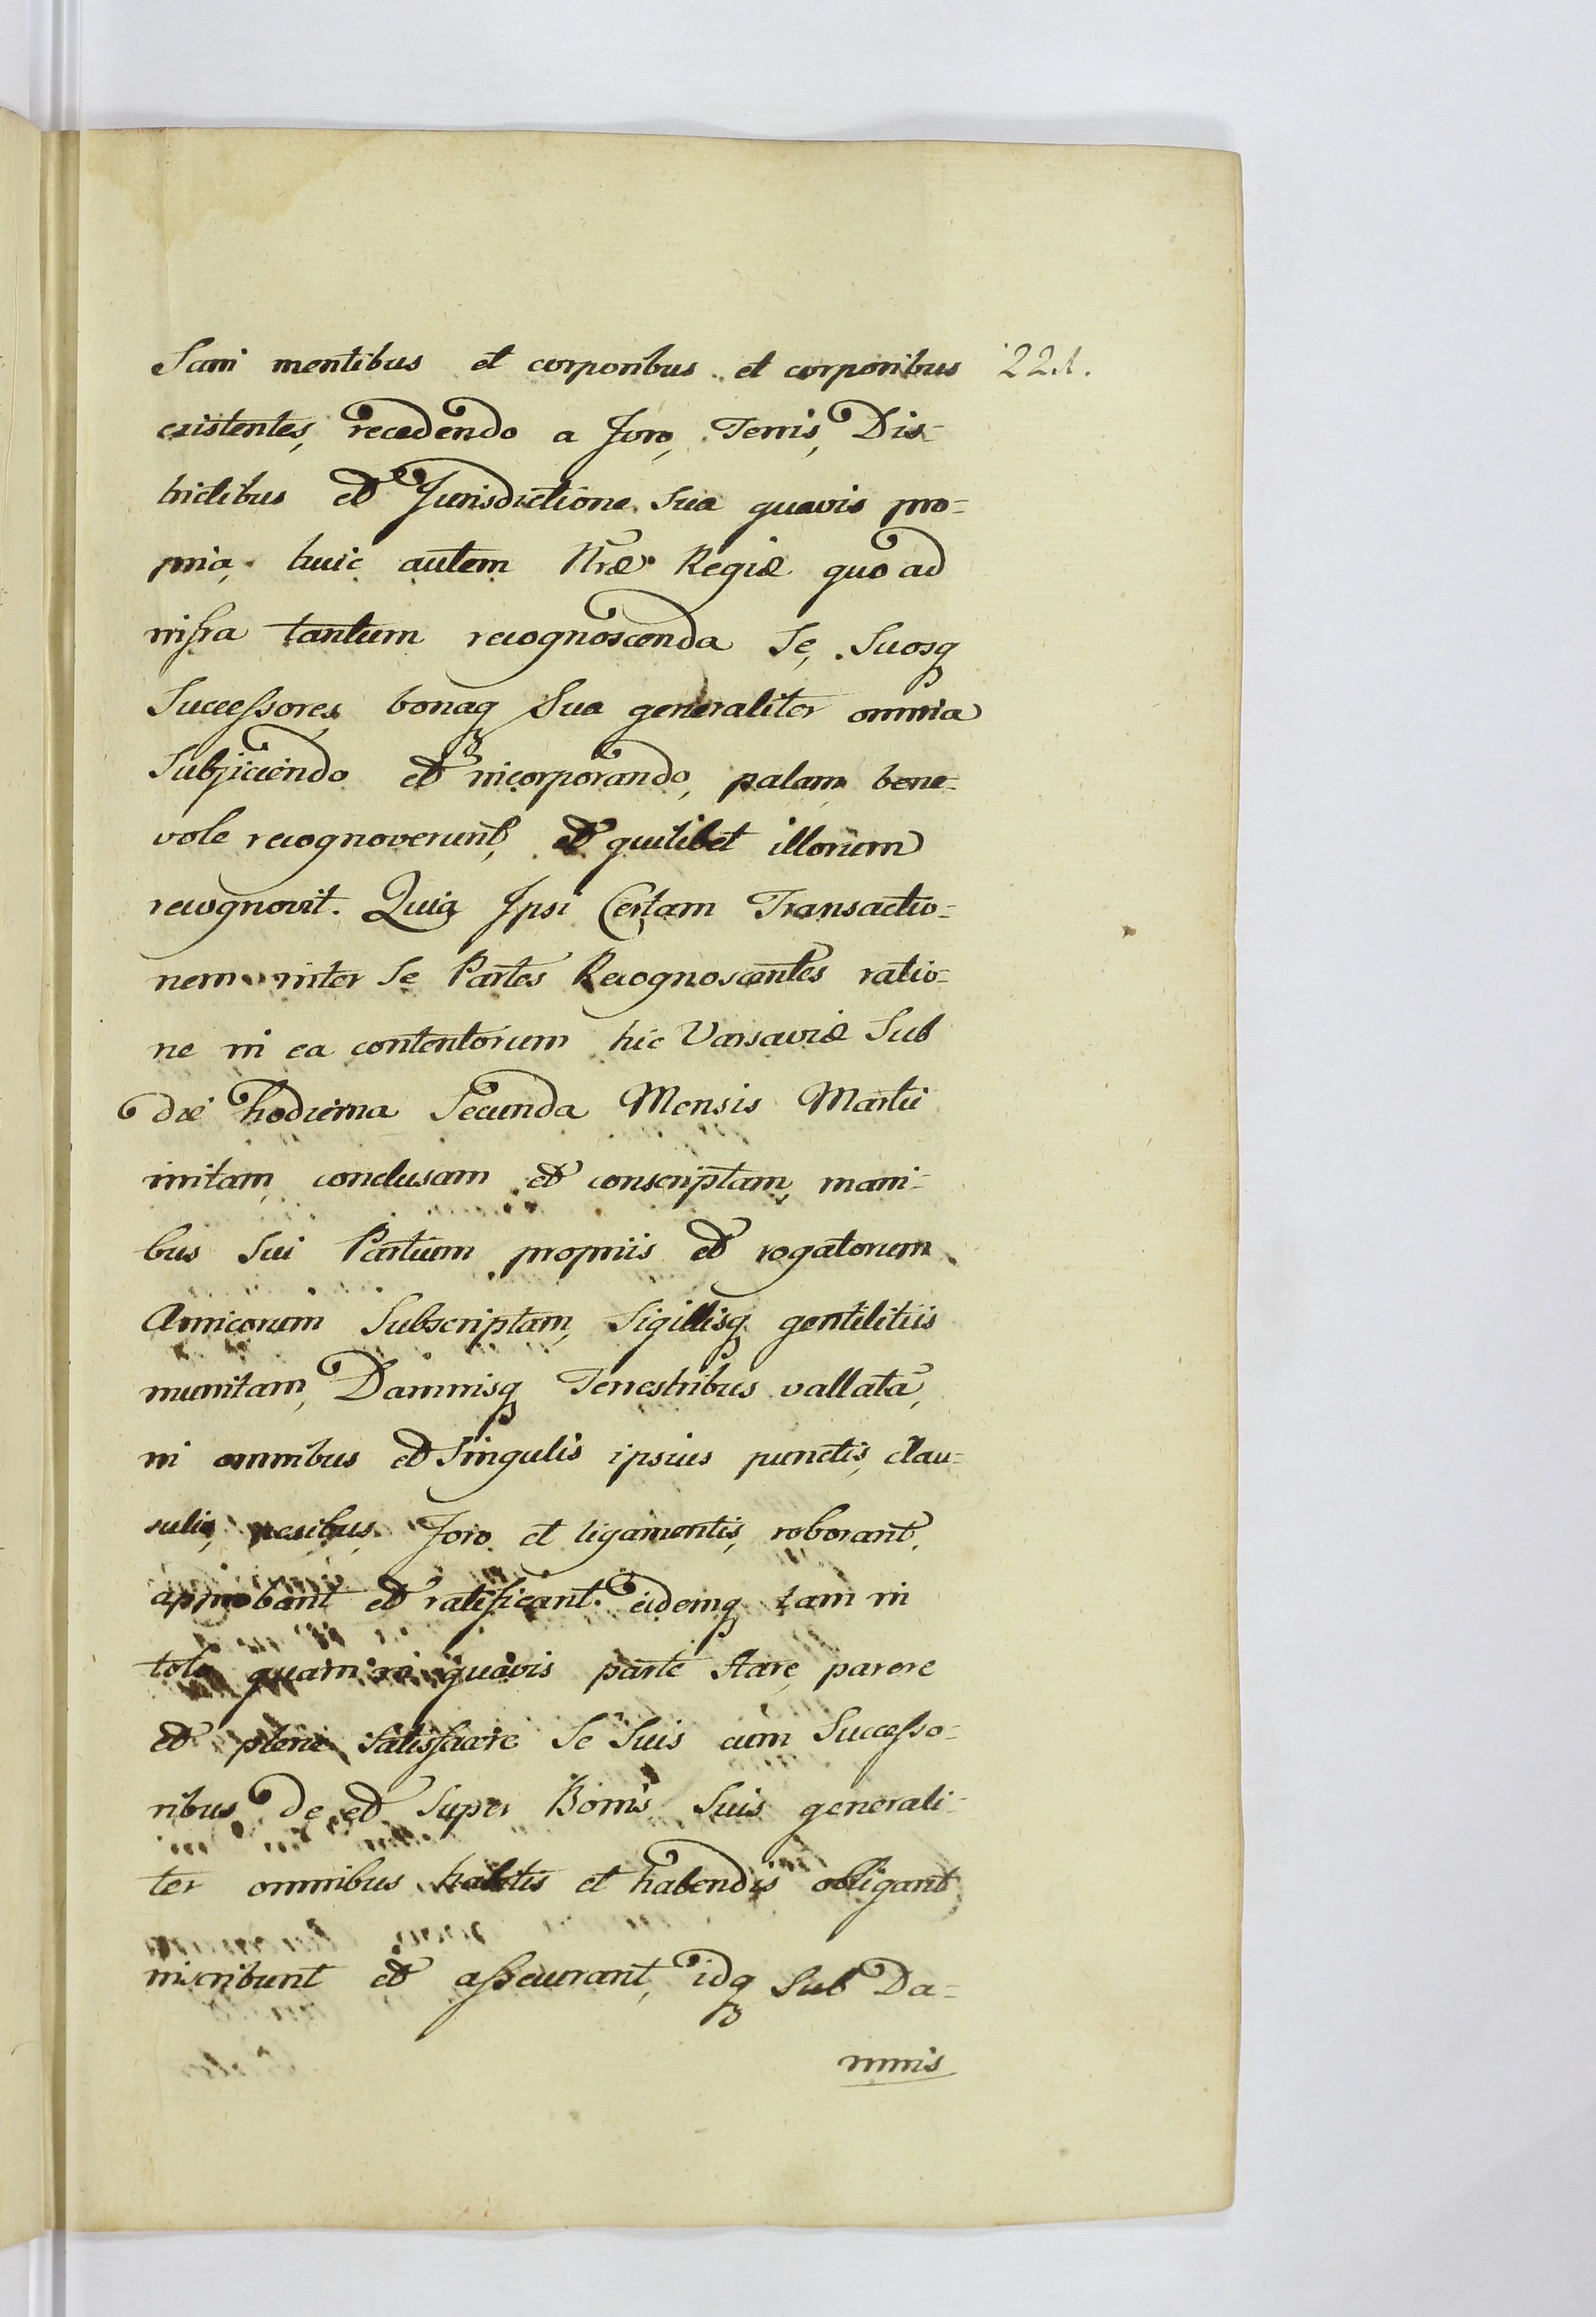 Sani mentibus et corporibus et corporibus 221.
existentes, recedendo a Foro, Terris, Dis-
trictibus et Jurisdictione Sua quavis pro-
pria, huic autem Nræ Regiæ quo ad
infra tantum recognoscenda Se, Suosq
Successores, bonaq Sua generaliter omnia
Subjiciendo et incorporando, palam bene-
vole recognoverunt, et quilibet illorum
recognovit. Quia Ipsi Certam Transactio-
nem inter Se Partes Recognoscentes ratio-
ne in ea contentorum hic Varsaviæ Sub
die hodierna Secunda Mensis Martii
initam, conclusam et conscriptam, mani-
bus Sui Partium propriis et rogatorum
Amicorum Subscriptam, Sigillisq gentilitiis
munitam, Damnisq Terrestribus vallatã,
in omnibus et Singulis ipsius punctis, clau-
sulis, nexibus, Foro et ligamentis, roborant,
approbant et ratificant. eidemq tam in
toto quam in quavis parte Stare, parere
et plene Satisfacere Se Suis cum Successo-
ribus de et Super Bonis Suis generali-
ter omnibus habitis et habendis obligant
inscribunt et assecurant, idq Sub Da-
mnis